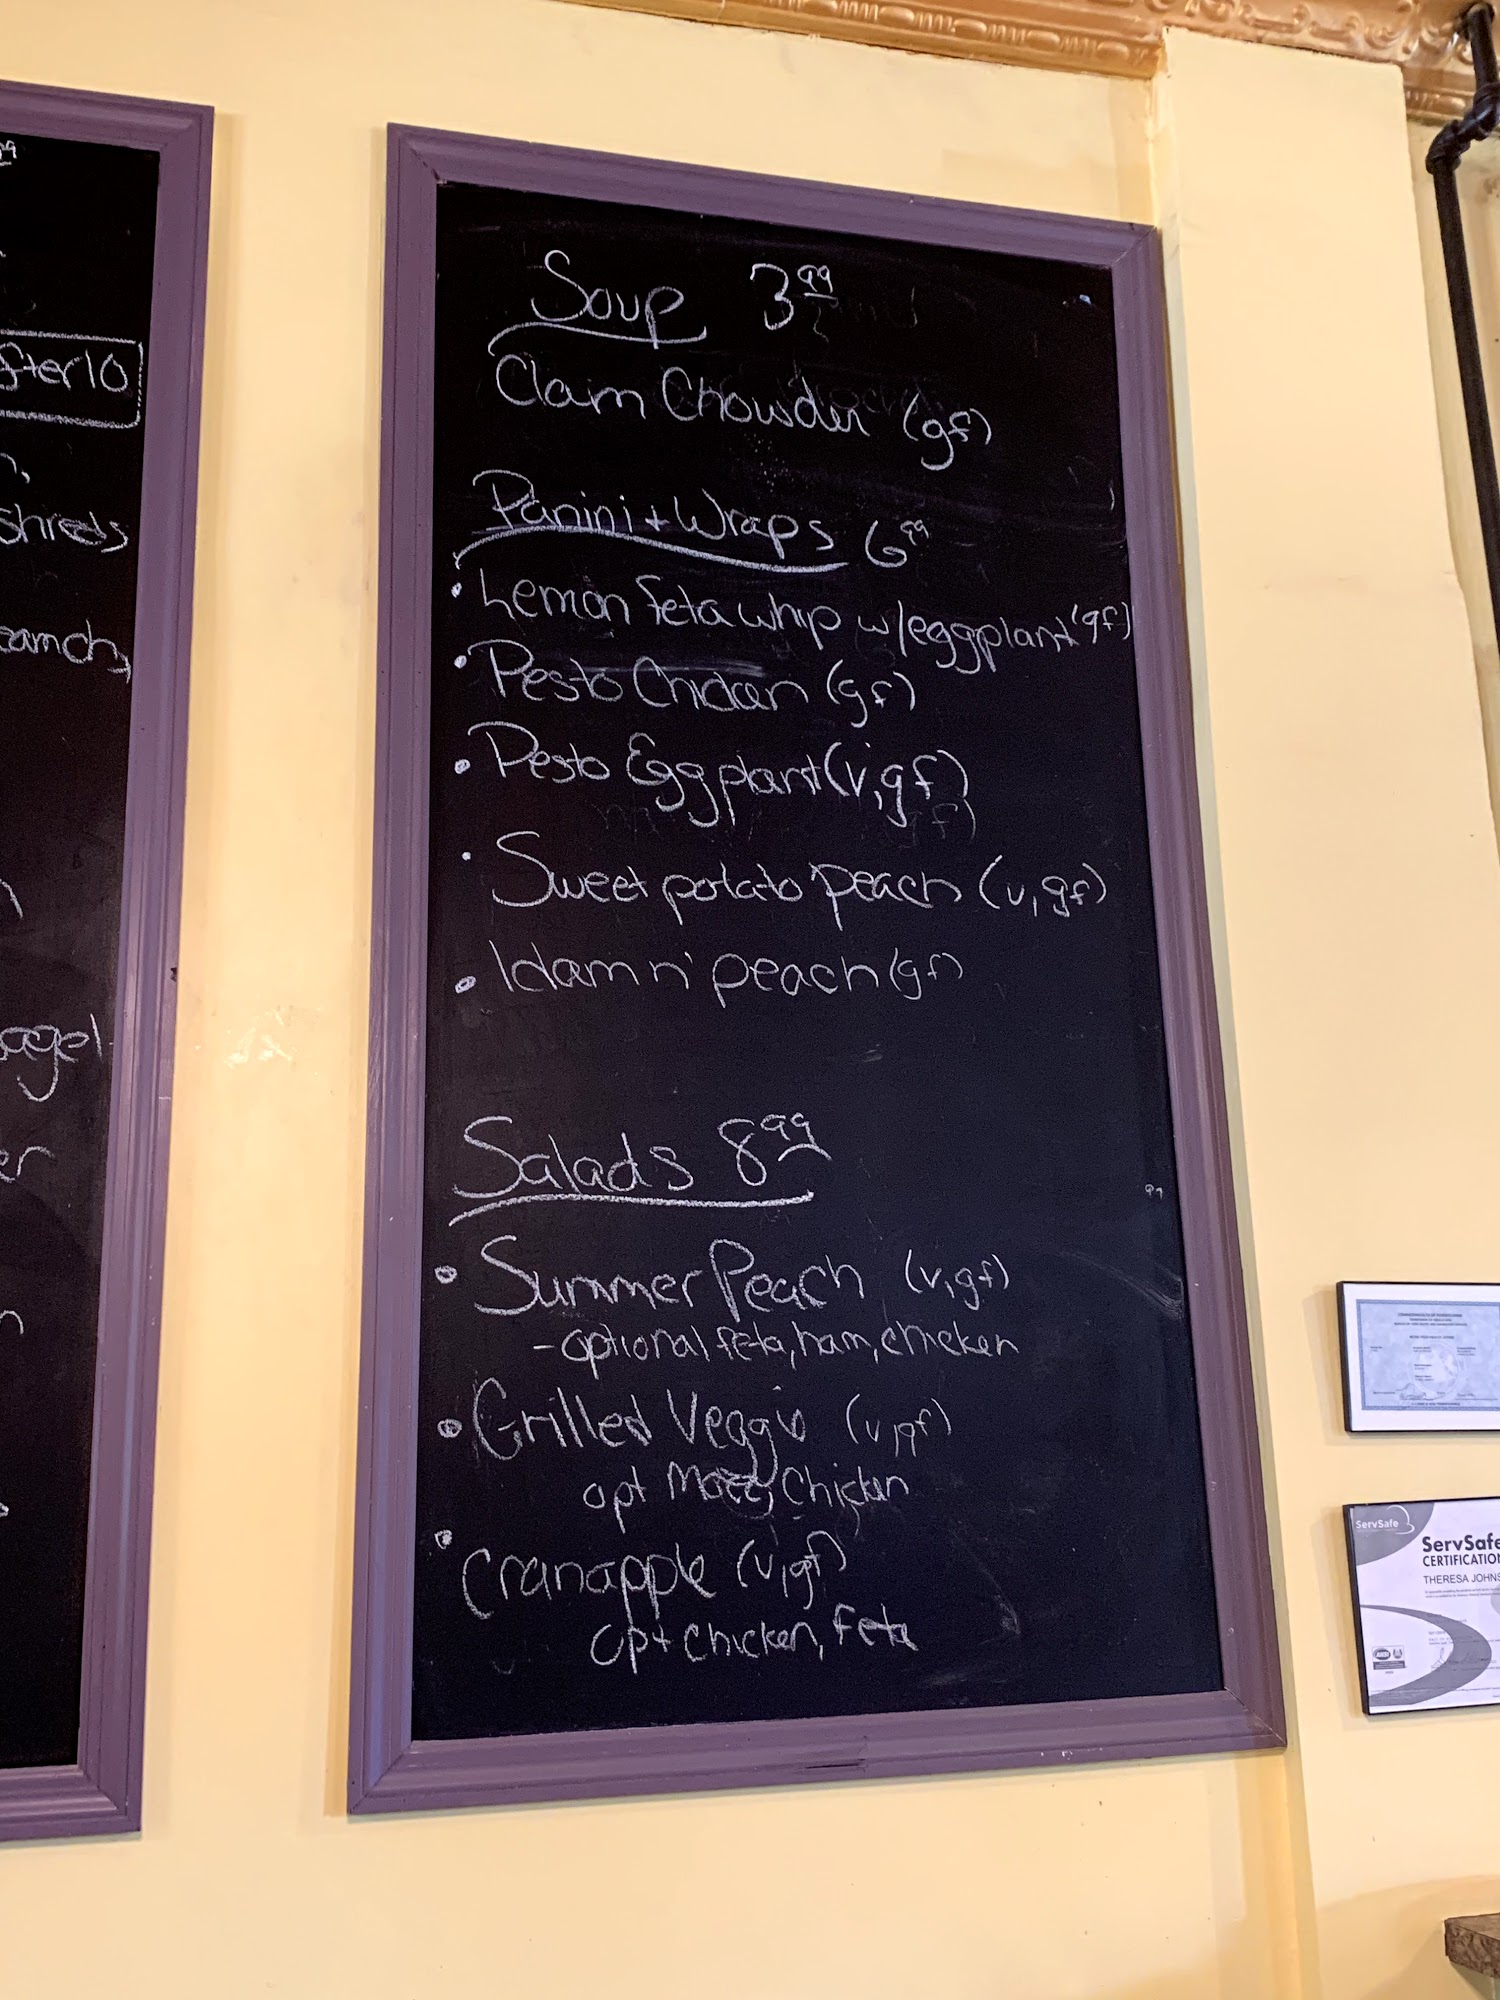 fter 10
shreds
agel
Soup 3.99
Clam Chowder (gf)
Panini + Wraps 6.99
• Lemon feta whip w/eggplant (gf)
• Pesto Chicken (gf)
• Pesto Eggplant (v, gf)
• Sweet potato peach (v, gf)
• Ham n' peach (gf)
Salads 8.99
• Summer Peach (v, gf)
- optional feta, ham, chicken
• Grilled Veggie (v, gf)
opt Mozz, Chicken
• Cranapple (v, gf)
opt chicken, feta
ServSafe
ServSafe
CERTIFICATION
THERESA JOHNS